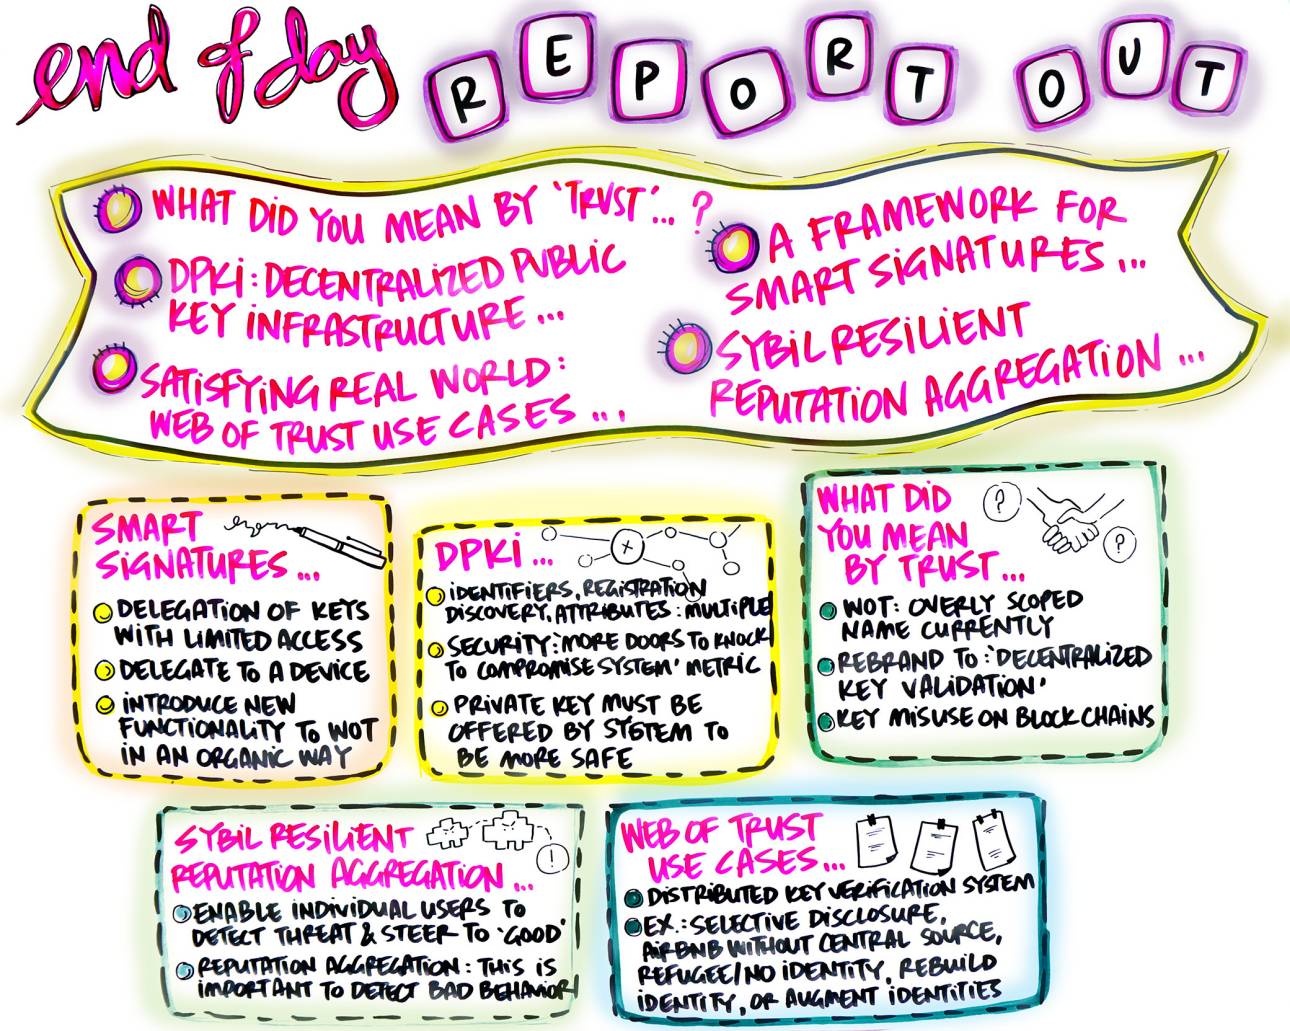 end of day REPORT OUT
WHAT DID YOU MEAN BY 'TRUST'... ?
DPKI: DECENTRALIZED PUBLIC
KEY INFRASTRUCTURE ...
SATISFYING REAL WORLD:
WEB OF TRUST USE CASES ...
A FRAMEWORK FOR
SMART SIGNATURES ...
SYBIL RESILIENT
REPUTATION AGGREGATION ...
SMART
SIGNATURES ...
DELEGATION OF KEYS
WITH LIMITED ACCESS
DELEGATE TO A DEVICE
INTRODUCE NEW
FUNCTIONALITY TO WOT
IN AN ORGANIC WAY
DPKI ...
IDENTIFIERS, REGISTRATION
DISCOVERY, ATTRIBUTES: MULTIPLE
SECURITY: 'MORE DOORS TO KNOCK
TO COMPROMISE SYSTEM' METRIC
PRIVATE KEY MUST BE
OFFERED BY SYSTEM TO
BE MORE SAFE
WHAT DID
YOU MEAN
BY TRUST...
?
?
WOT: OVERLY SCOPED
NAME CURRENTLY
REBRAND TO: 'DECENTRALIZED
KEY VALIDATION'
KEY MISUSE ON BLOCK CHAINS
SYBIL RESILIENT
REPUTATION AGGREGATION ...
!
ENABLE INDIVIDUAL USERS TO
DETECT THREAT & STEER TO 'GOOD'
REPUTATION AGGREGATION: THIS IS
IMPORTANT TO DETECT BAD BEHAVIOR
WEB OF TRUST
USE CASES...
DISTRIBUTED KEY VERIFICATION SYSTEM
EX.: SELECTIVE DISCLOSURE,
AIRBNB WITHOUT CENTRAL SOURCE,
REFUGEE/NO IDENTITY, REBUILD
IDENTITY, OR AUGMENT IDENTITIES